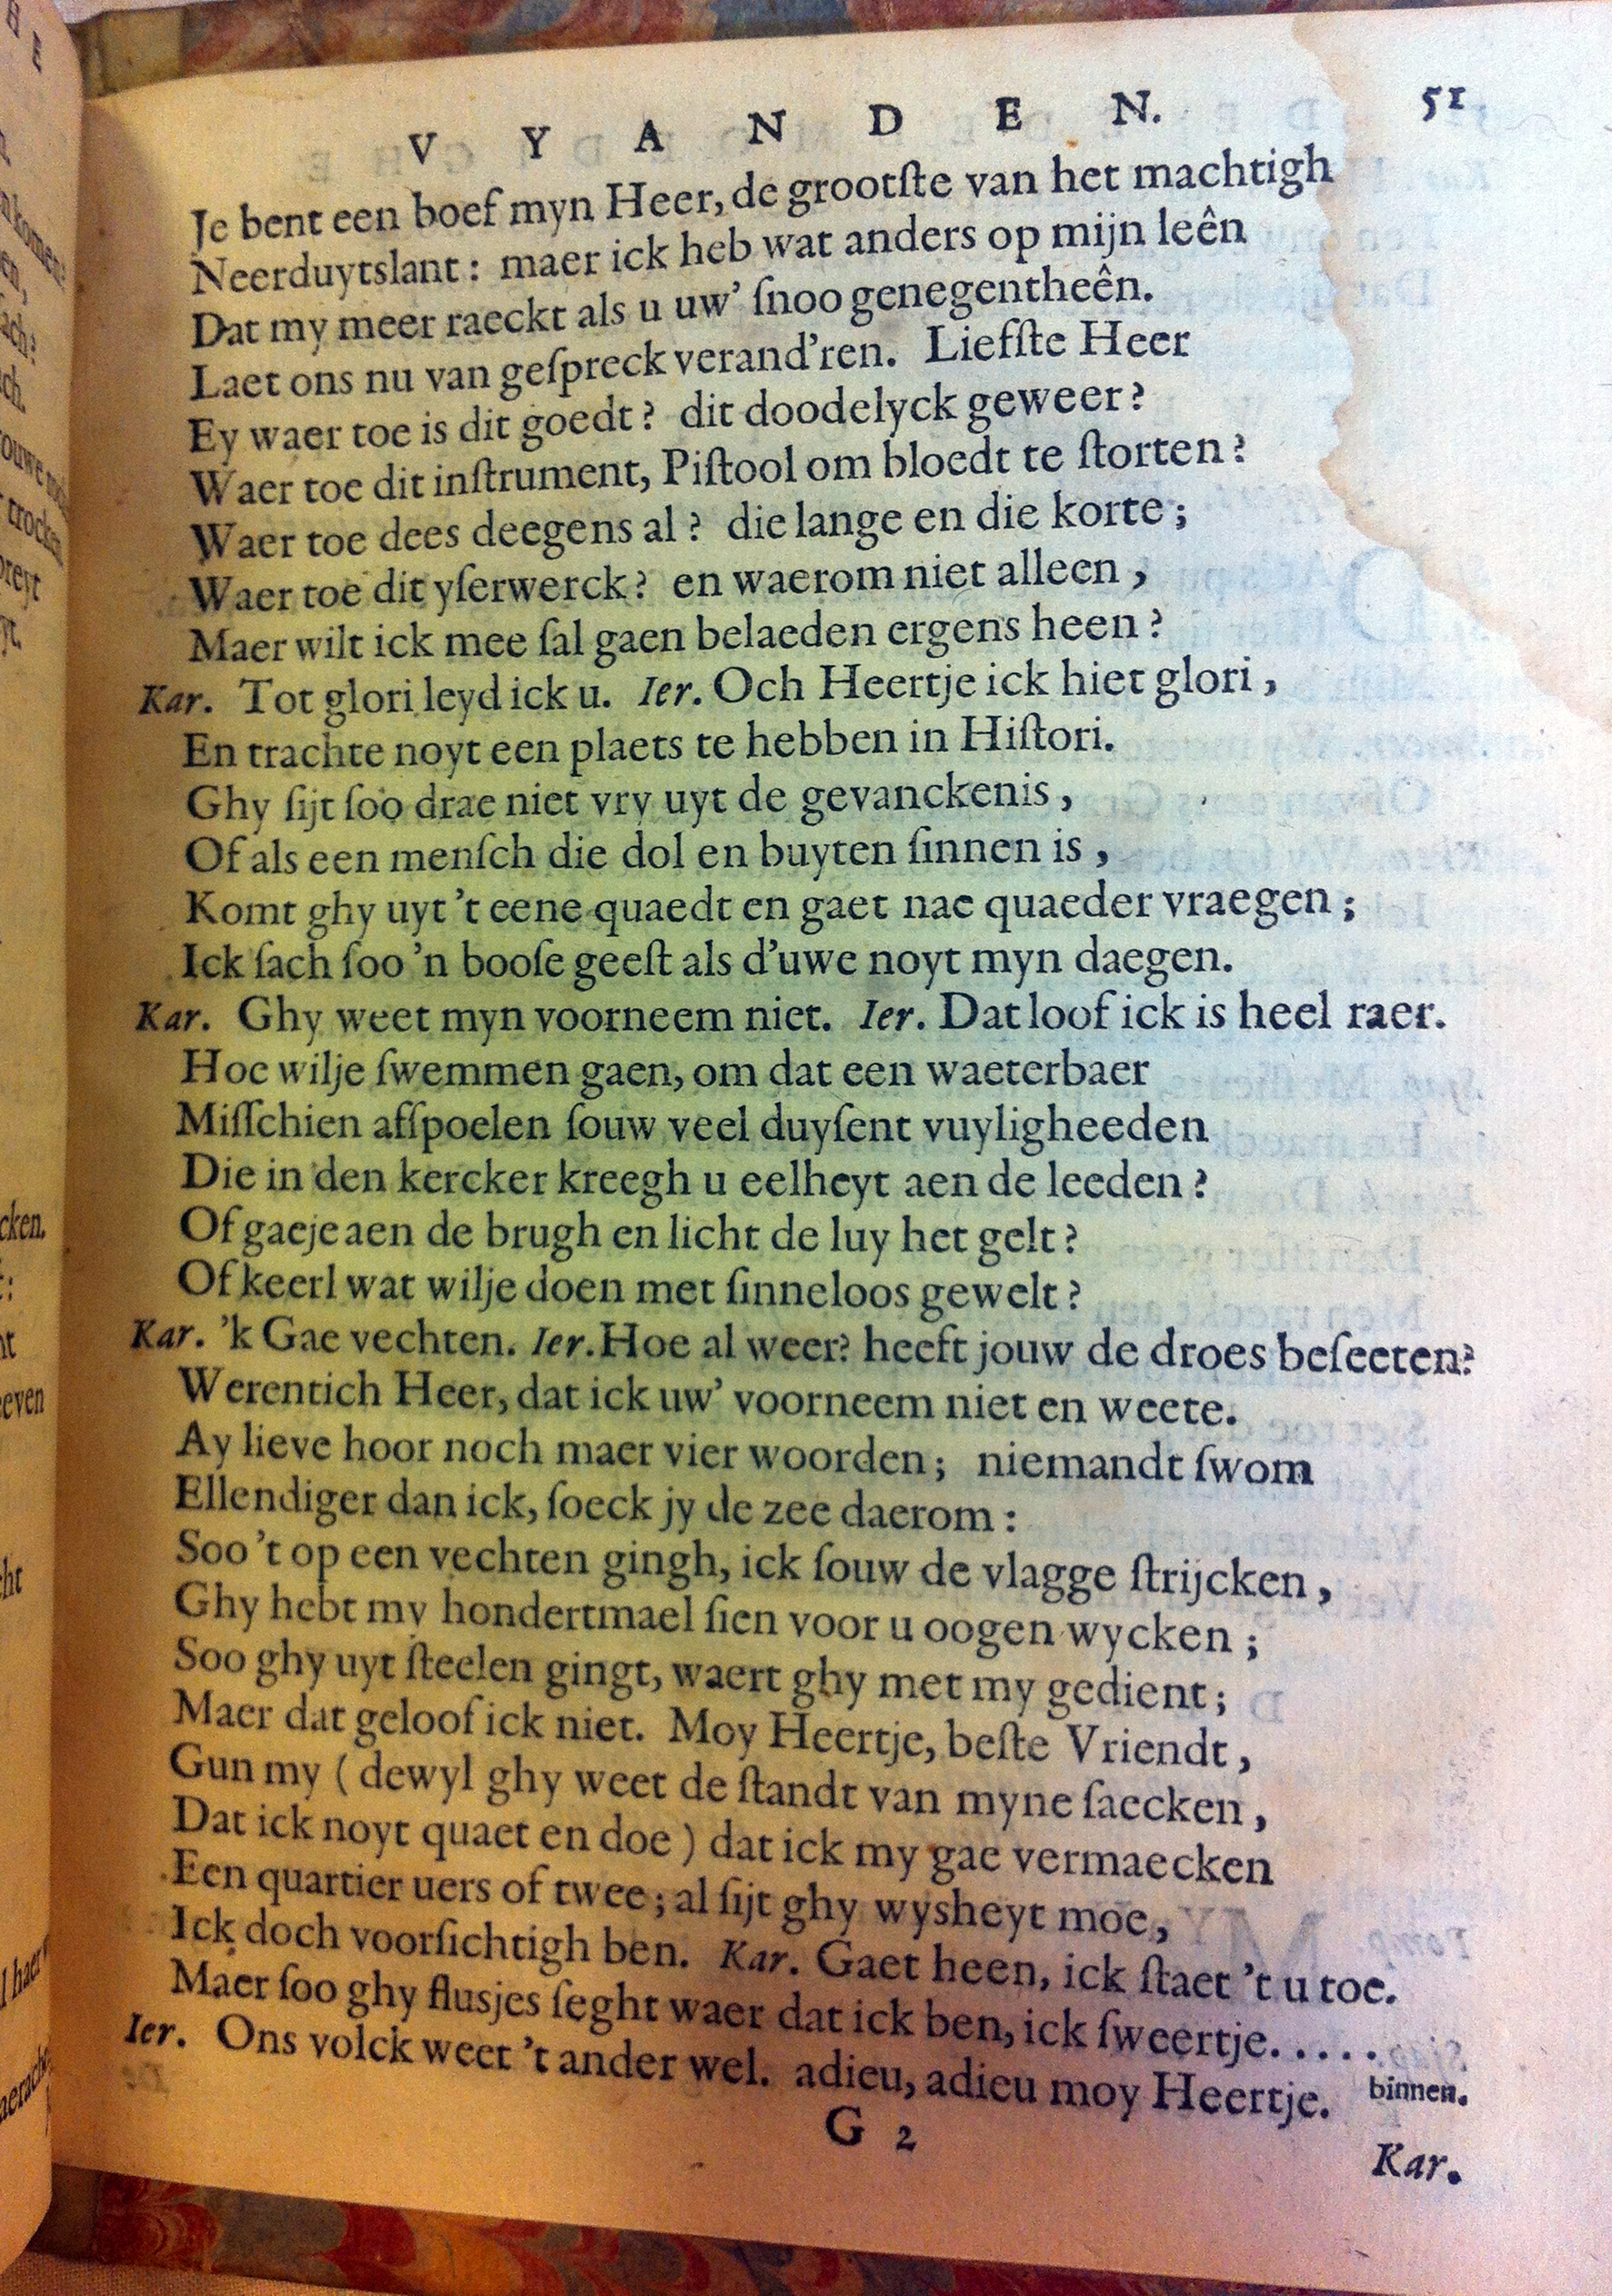 V Y A N D E N. 51
Je bent een boef myn Heer, de grootſte van het machtigh
Neerduytslant: maer ick heb wat anders op mijn leên
Dat my meer raeckt als u uw' ſnoo genegentheên.
Laet ons nu van geſpreck verand'ren. Liefſte Heer
Ey waer toe is dit goedt? dit doodelyck geweer?
Waer toe dit inſtrument, Piſtool om bloedt te ſtorten?
Waer toe dees deegens al? die lange en die korte;
Waer toe dit yſerwerck? en waerom niet alleen,
Maer wilt ick mee ſal gaen belaeden ergens heen?
Kar. Tot glori leyd ick u. Ier. Och Heertje ick hiet glori,
En trachte noyt een plaets te hebben in Hiſtori.
Ghy ſijt ſoo drae niet vry uyt de gevanckenis,
Of als een menſch die dol en buyten ſinnen is,
Komt ghy uyt 't eene quaedt en gaet nae quaeder vraegen;
Ick ſach ſoo 'n booſe geeſt als d'uwe noyt myn daegen.
Kar. Ghy weet myn voorneem niet. Ier. Dat loof ick is heel raer.
Hoe wilje ſwemmen gaen, om dat een waeterbaer
Miſſchien afſpoelen ſouw veel duyſent vuyligheeden
Die in den kercker kreegh u eelheyt aen de leeden?
Of gaeje aen de brugh en licht de luy het gelt?
Of keerl wat wilje doen met ſinneloos gewelt?
Kar. 'k Gae vechten. Ier. Hoe al weer? heeft jouw de droes beſeeten?
Werentich Heer, dat ick uw' voorneem niet en weete.
Ay lieve hoor noch maer vier woorden; niemandt ſwom
Ellendiger dan ick, ſoeck jy de zee daerom:
Soo 't op een vechten gingh, ick ſouw de vlagge ſtrijcken,
Ghy hebt my hondertmael ſien voor u oogen wycken;
Soo ghy uyt ſteelen gingt, waert ghy met my gedient;
Maer dat geloof ick niet. Moy Heertje, beſte Vriendt,
Gun my (dewyl ghy weet de ſtandt van myne ſaecken,
Dat ick noyt quaet en doe) dat ick my gae vermaecken
Een quartier uers of twee; al ſijt ghy wysheyt moe,
Ick doch voorſichtigh ben. Kar. Gaet heen, ick ſtaet 't u toe.
Maer ſoo ghy fluſjes ſeght waer dat ick ben, ick ſweertje.....
Ier. Ons volck weet 't ander wel. adieu, adieu moy Heertje. binnen.
G 2
Kar.